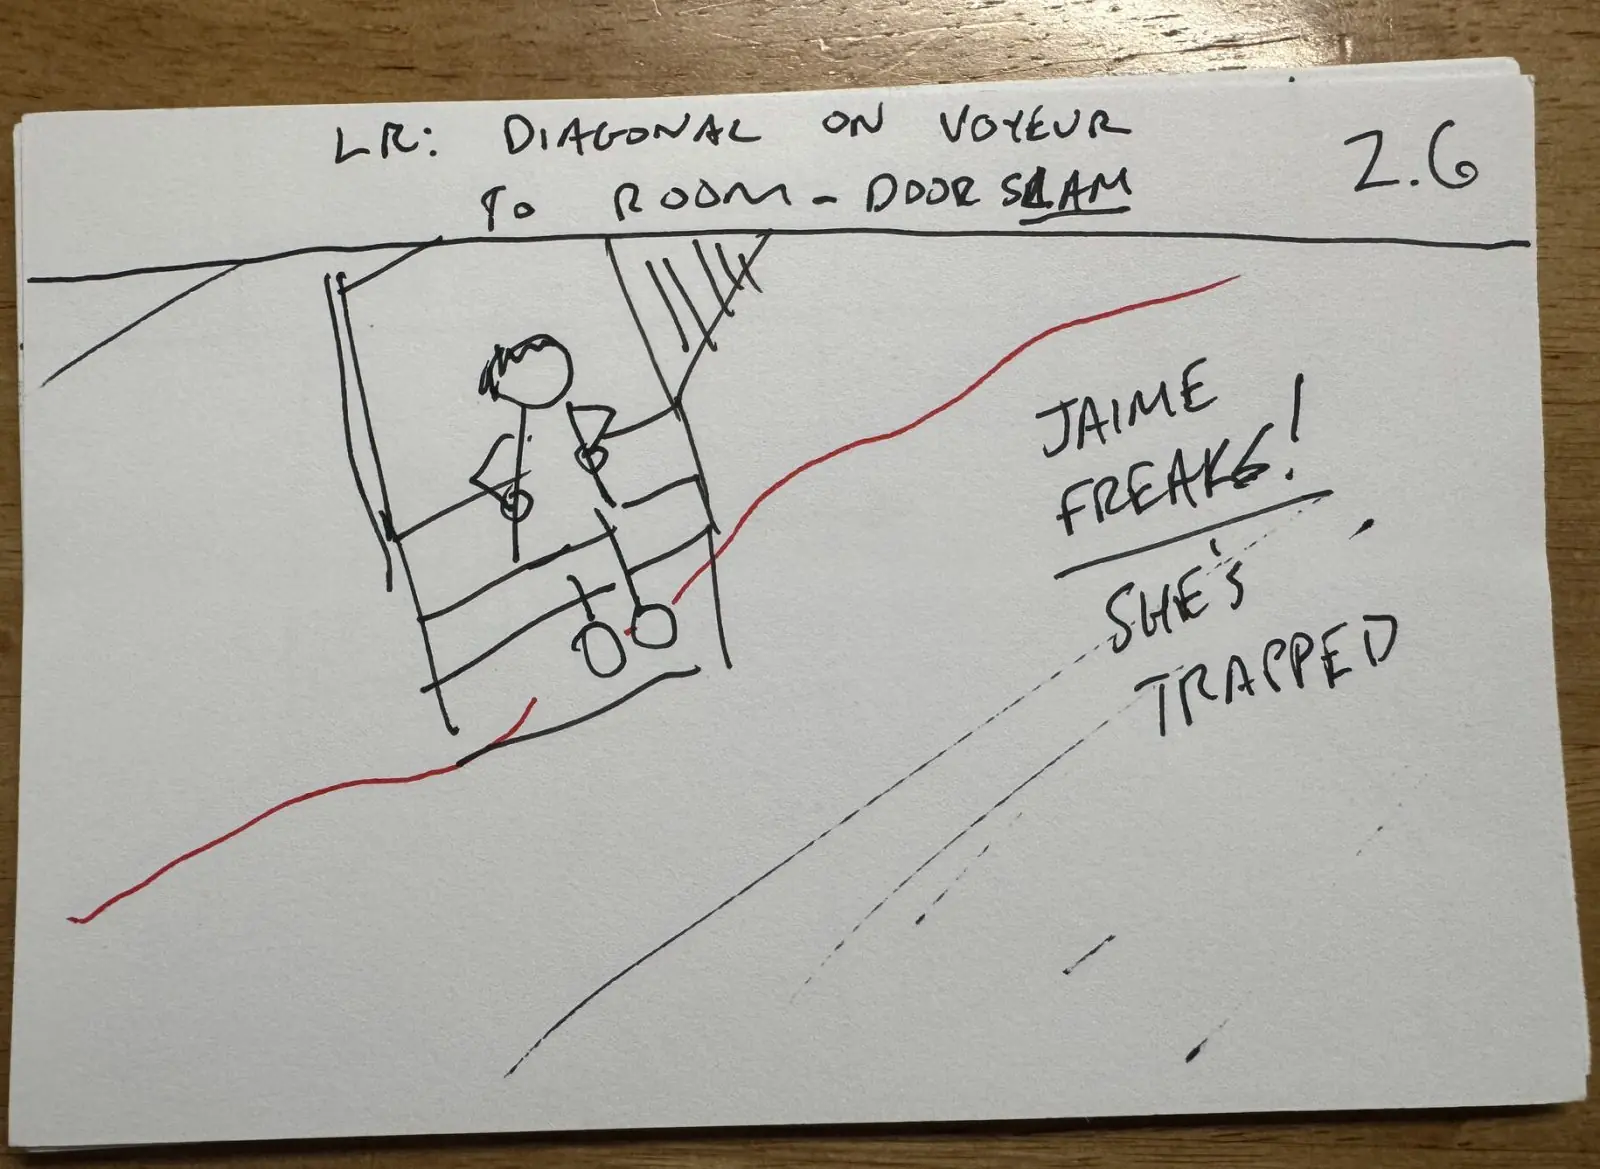 LR: DIAGONAL ON VOYEUR
TO ROOM - DOOR SLAM
2.6
JAIME
FREAKS!
SHE'S
TRAPPED